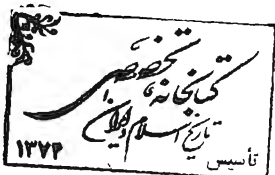 كتابخانه تخصصی
تاریخ اسلام و ایران
تأسیس ۱۳۷۲